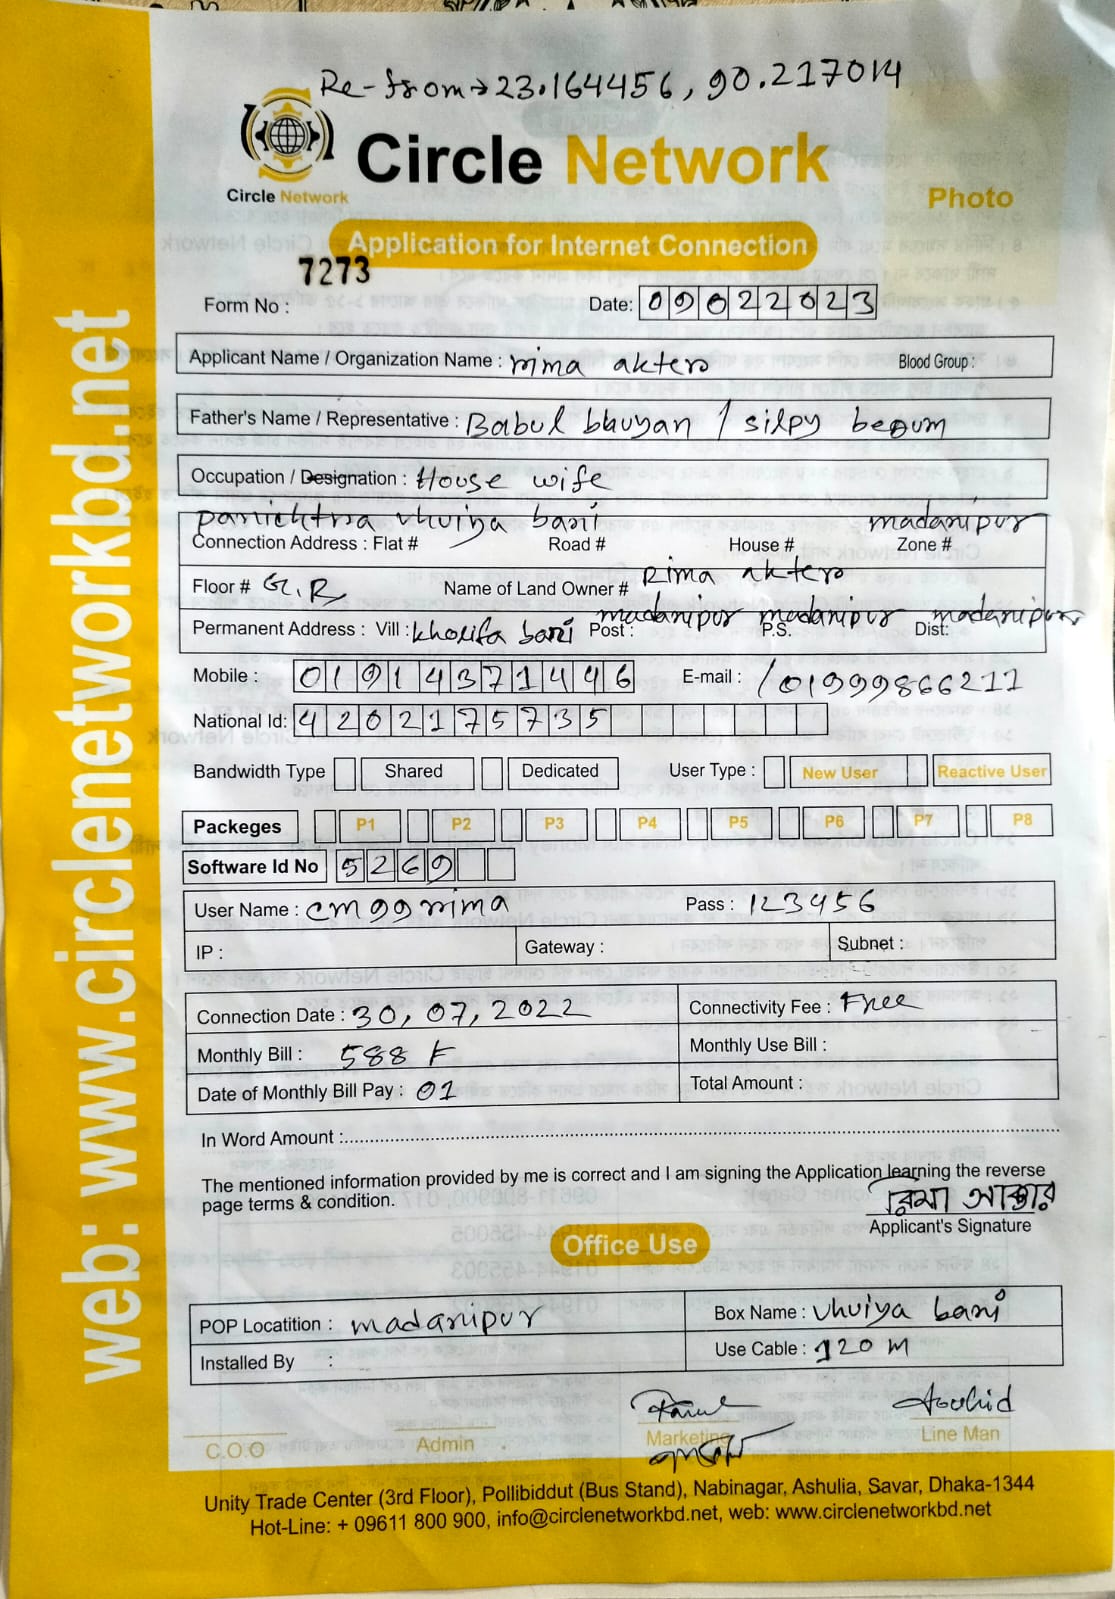 Re-from→23.164456, 90.217014
Circle Network
Circle Network
Photo
Application for Internet Connection
7273
Form No :
Date: 09022023
Applicant Name / Organization Name : rima akter
Blood Group :
Father's Name / Representative : Babul bhuyan / silpy begum
Occupation / Designation : House wife
panichtra vhuiya bari madanipur
Connection Address : Flat # Road # House # Zone #
Floor # G.R Name of Land Owner # Rima akter
Permanent Address : Vill : kholifa bari Post : madanipur P.S. madanipur Dist: madanipur
Mobile : 01914371446 E-mail : /01999866211
National Id: 4202175735
Bandwidth Type Shared Dedicated User Type : New User Reactive User
Packeges P1 P2 P3 P4 P5 P6 P7 P8
Software Id No 5269
User Name : cmggrima Pass : 123456
IP : Gateway : Subnet :
Connection Date : 30, 07, 2022 Connectivity Fee : Free
Monthly Bill : 588 Monthly Use Bill :
Date of Monthly Bill Pay : 01 Total Amount :
In Word Amount :
The mentioned information provided by me is correct and I am signing the Application learning the reverse
page terms & condition.
রিমা আক্তার
Applicant's Signature
Office Use
POP Locatition : madanipur Box Name : vhuiya bari
Installed By : Use Cable : 120 M
C.O.O Admin Marketing Line Man
Unity Trade Center (3rd Floor), Pollibiddut (Bus Stand), Nabinagar, Ashulia, Savar, Dhaka-1344
Hot-Line: + 09611 800 900, info@circlenetworkbd.net, web: www.circlenetworkbd.net
web: www.circlenetworkbd.net